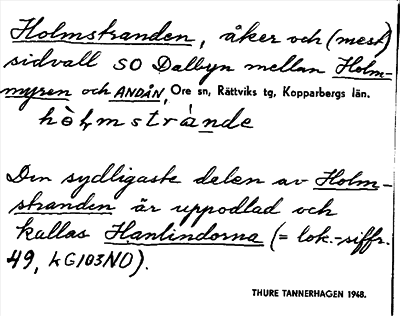 Holmstranden, åker och (mest)
sidvall SO Dalbyn mellan Holm-
myren och ANDÅN, Ore sn, Rättviks tg, Kopparbergs län.
hò̀ḷmstrànde
Den sydligaste delen av Holm-
stranden är uppodlad och
kallas Hanlindorna (= lok.-siffr.
49, kG103NO).
THURE TANNERHAGEN 1948.